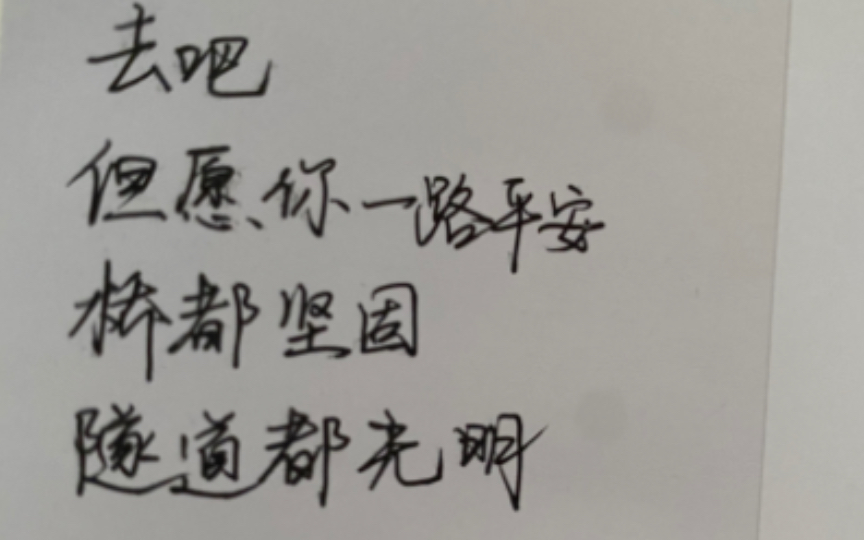 去吧
但愿你一路平安
桥都坚固
隧道都光明